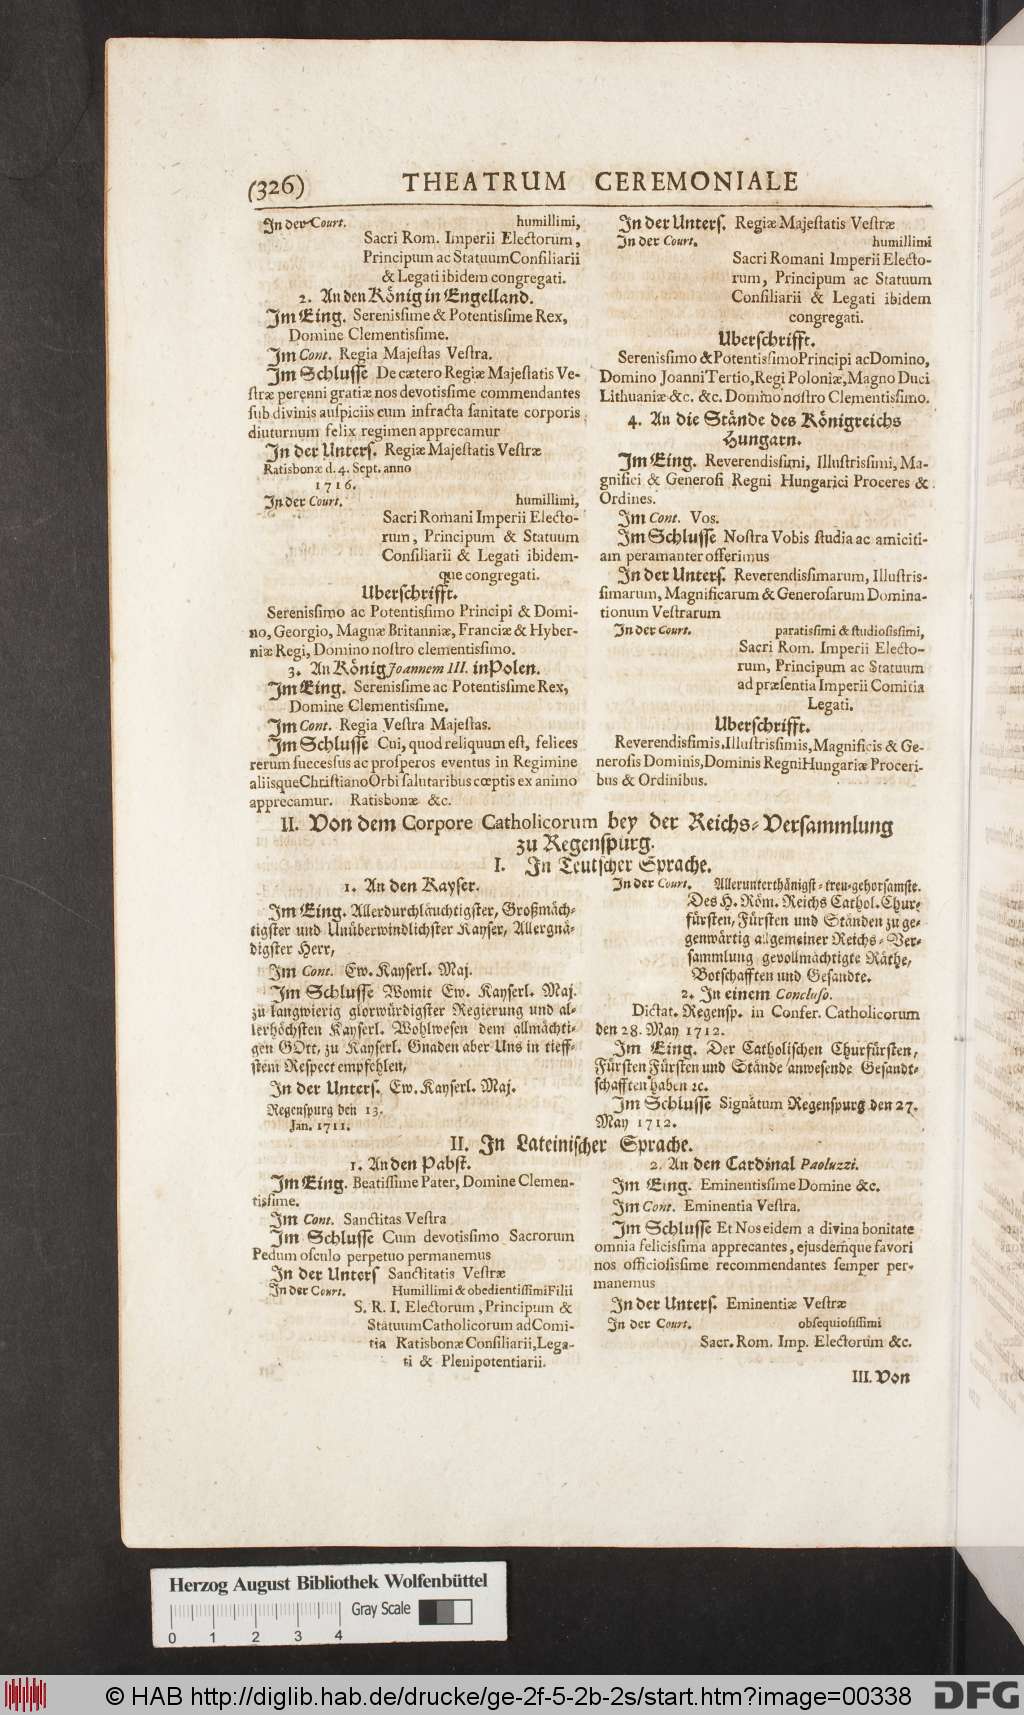 (326) THEATRUM CEREMONIALE
In der Court. humillimi,
Sacri Rom. Imperii Electorum,
Principum ac Statuum Consiliarii
& Legati ibidem congregati.
2. An den König in Engelland.
Im Eing. Serenissime & Potentissime Rex,
Domine Clementissime.
Im Cont. Regia Majestas Vestra.
Im Schlusse De cætero Regiæ Majestatis Ve-
stræ perenni gratiæ nos devotissime commendantes
sub divinis auspiciis cum infracta sanitate corporis
diuturnum felix regimen apprecamur
In der Unters. Regiæ Majestatis Vestræ
Ratisbonæ d. 4. Sept. anno
1716.
In der Court. humillimi,
Sacri Romani Imperii Electo-
rum, Principum & Statuum
Consiliarii & Legati ibidem-
que congregati.
Uberschrifft.
Serenissimo ac Potentissimo Principi & Domi-
no, Georgio, Magnæ Britanniæ, Franciæ & Hyber-
niæ Regi, Domino nostro clementissimo.
3. An König Joannem III. in Polen.
Im Eing. Serenissime ac Potentissime Rex,
Domine Clementissime.
Im Cont. Regia Vestra Majestas.
Im Schlusse Cui, quod reliquum est, felices
rerum successus ac prosperos eventus in Regimine
aliisque Christiano Orbi salutaribus cœptis ex animo
apprecamur. Ratisbonæ &c.
In der Unters. Regiæ Majestatis Vestræ
In der Court. humillimi
Sacri Romani Imperii Electo-
rum, Principum ac Statuum
Consiliarii & Legati ibidem
congregati.
Uberschrifft.
Serenissimo & Potentissimo Principi ac Domino,
Domino Joanni Tertio, Regi Poloniæ, Magno Duci
Lithuaniæ &c. &c. Domino nostro Clementissimo.
4. An die Stände des Königreichs
Hungarn.
Im Eing. Reverendissimi, Illustrissimi, Ma-
gnifici & Generosi Regni Hungarici Proceres &
Ordines.
Im Cont. Vos.
Im Schlusse Nostra Vobis studia ac amiciti-
am peramanter offerimus
In der Unters. Reverendissimarum, Illustris-
simarum, Magnificarum & Generosarum Domina-
tionum Vestrarum
In der Court. paratissimi & studiosissimi,
Sacri Rom. Imperii Electo-
rum, Principum ac Statuum
ad præsentia Imperii Comitia
Legati.
Uberschrifft.
Reverendissimis, Illustrissimis, Magnificis & Ge-
nerosis Dominis, Dominis Regni Hungariæ Proceri-
bus & Ordinibus.
II. Von dem Corpore Catholicorum bey der Reichs-Versammlung
zu Regenspurg.
I. In Teutscher Sprache.
1. An den Kayser.
Im Eing. Allerdurchläuchtigster, Großmäch-
tigster und Unüberwindlichster Kayser, Allergnä-
digster Herr,
Im Cont. Ew. Kayserl. Maj.
Im Schlusse Womit Ew. Kayserl. Maj.
zu langwierig glorwürdigster Regierung und al-
lerhöchsten Kayserl. Wohlwesen dem allmächti-
gen GOtt, zu Kayserl. Gnaden aber Uns in tieff-
stem Respect empfehlen,
In der Unters. Ew. Kayserl. Maj.
Regenspurg den 13.
Jan. 1711.
In der Court. Allerunterthänigst-treu-gehorsamste.
Des H. Röm. Reichs Cathol. Chur-
fürsten, Fürsten und Ständen zu ge-
genwärtig allgemeiner Reichs-Ver-
sammlung gevollmächtigte Räthe,
Botschafften und Gesandte.
2. In einem Concluso.
Dictat. Regensp. in Confer. Catholicorum
den 28. May 1712.
Im Eing. Der Catholischen Churfürsten,
Fürsten Fürsten und Stände anwesende Gesandt-
schafften haben ꝛc.
Im Schlusse Signatum Regenspurg den 27.
May 1712.
II. In Lateinischer Sprache.
1. An den Pabst.
Im Eing. Beatissime Pater, Domine Clemen-
tissime.
Im Cont. Sanctitas Vestra
Im Schlusse Cum devotissimo Sacrorum
Pedum osculo perpetuo permanemus
In der Unters Sanctitatis Vestræ
In der Court. Humillimi & obedientissimi Filii
S. R. I. Electorum, Principum &
Statuum Catholicorum ad Comi-
tia Ratisbonæ Consiliarii, Lega-
ti & Plenipotentiarii.
2. An den Cardinal Paoluzzi.
Im Eing. Eminentissime Domine &c.
Im Cont. Eminentia Vestra.
Im Schlusse Et Nos eidem a divina bonitate
omnia felicissima apprecantes, ejusdemque favori
nos officiosissime recommendantes semper per-
manemus
In der Unters. Eminentiæ Vestræ
In der Court. obsequiosissimi
Sacr. Rom. Imp. Electorum &c.
III. Von
Herzog August Bibliothek Wolfenbüttel
Gray Scale
0 1 2 3 4
© HAB http://diglib.hab.de/drucke/ge-2f-5-2b-2s/start.htm?image=00338 DFG